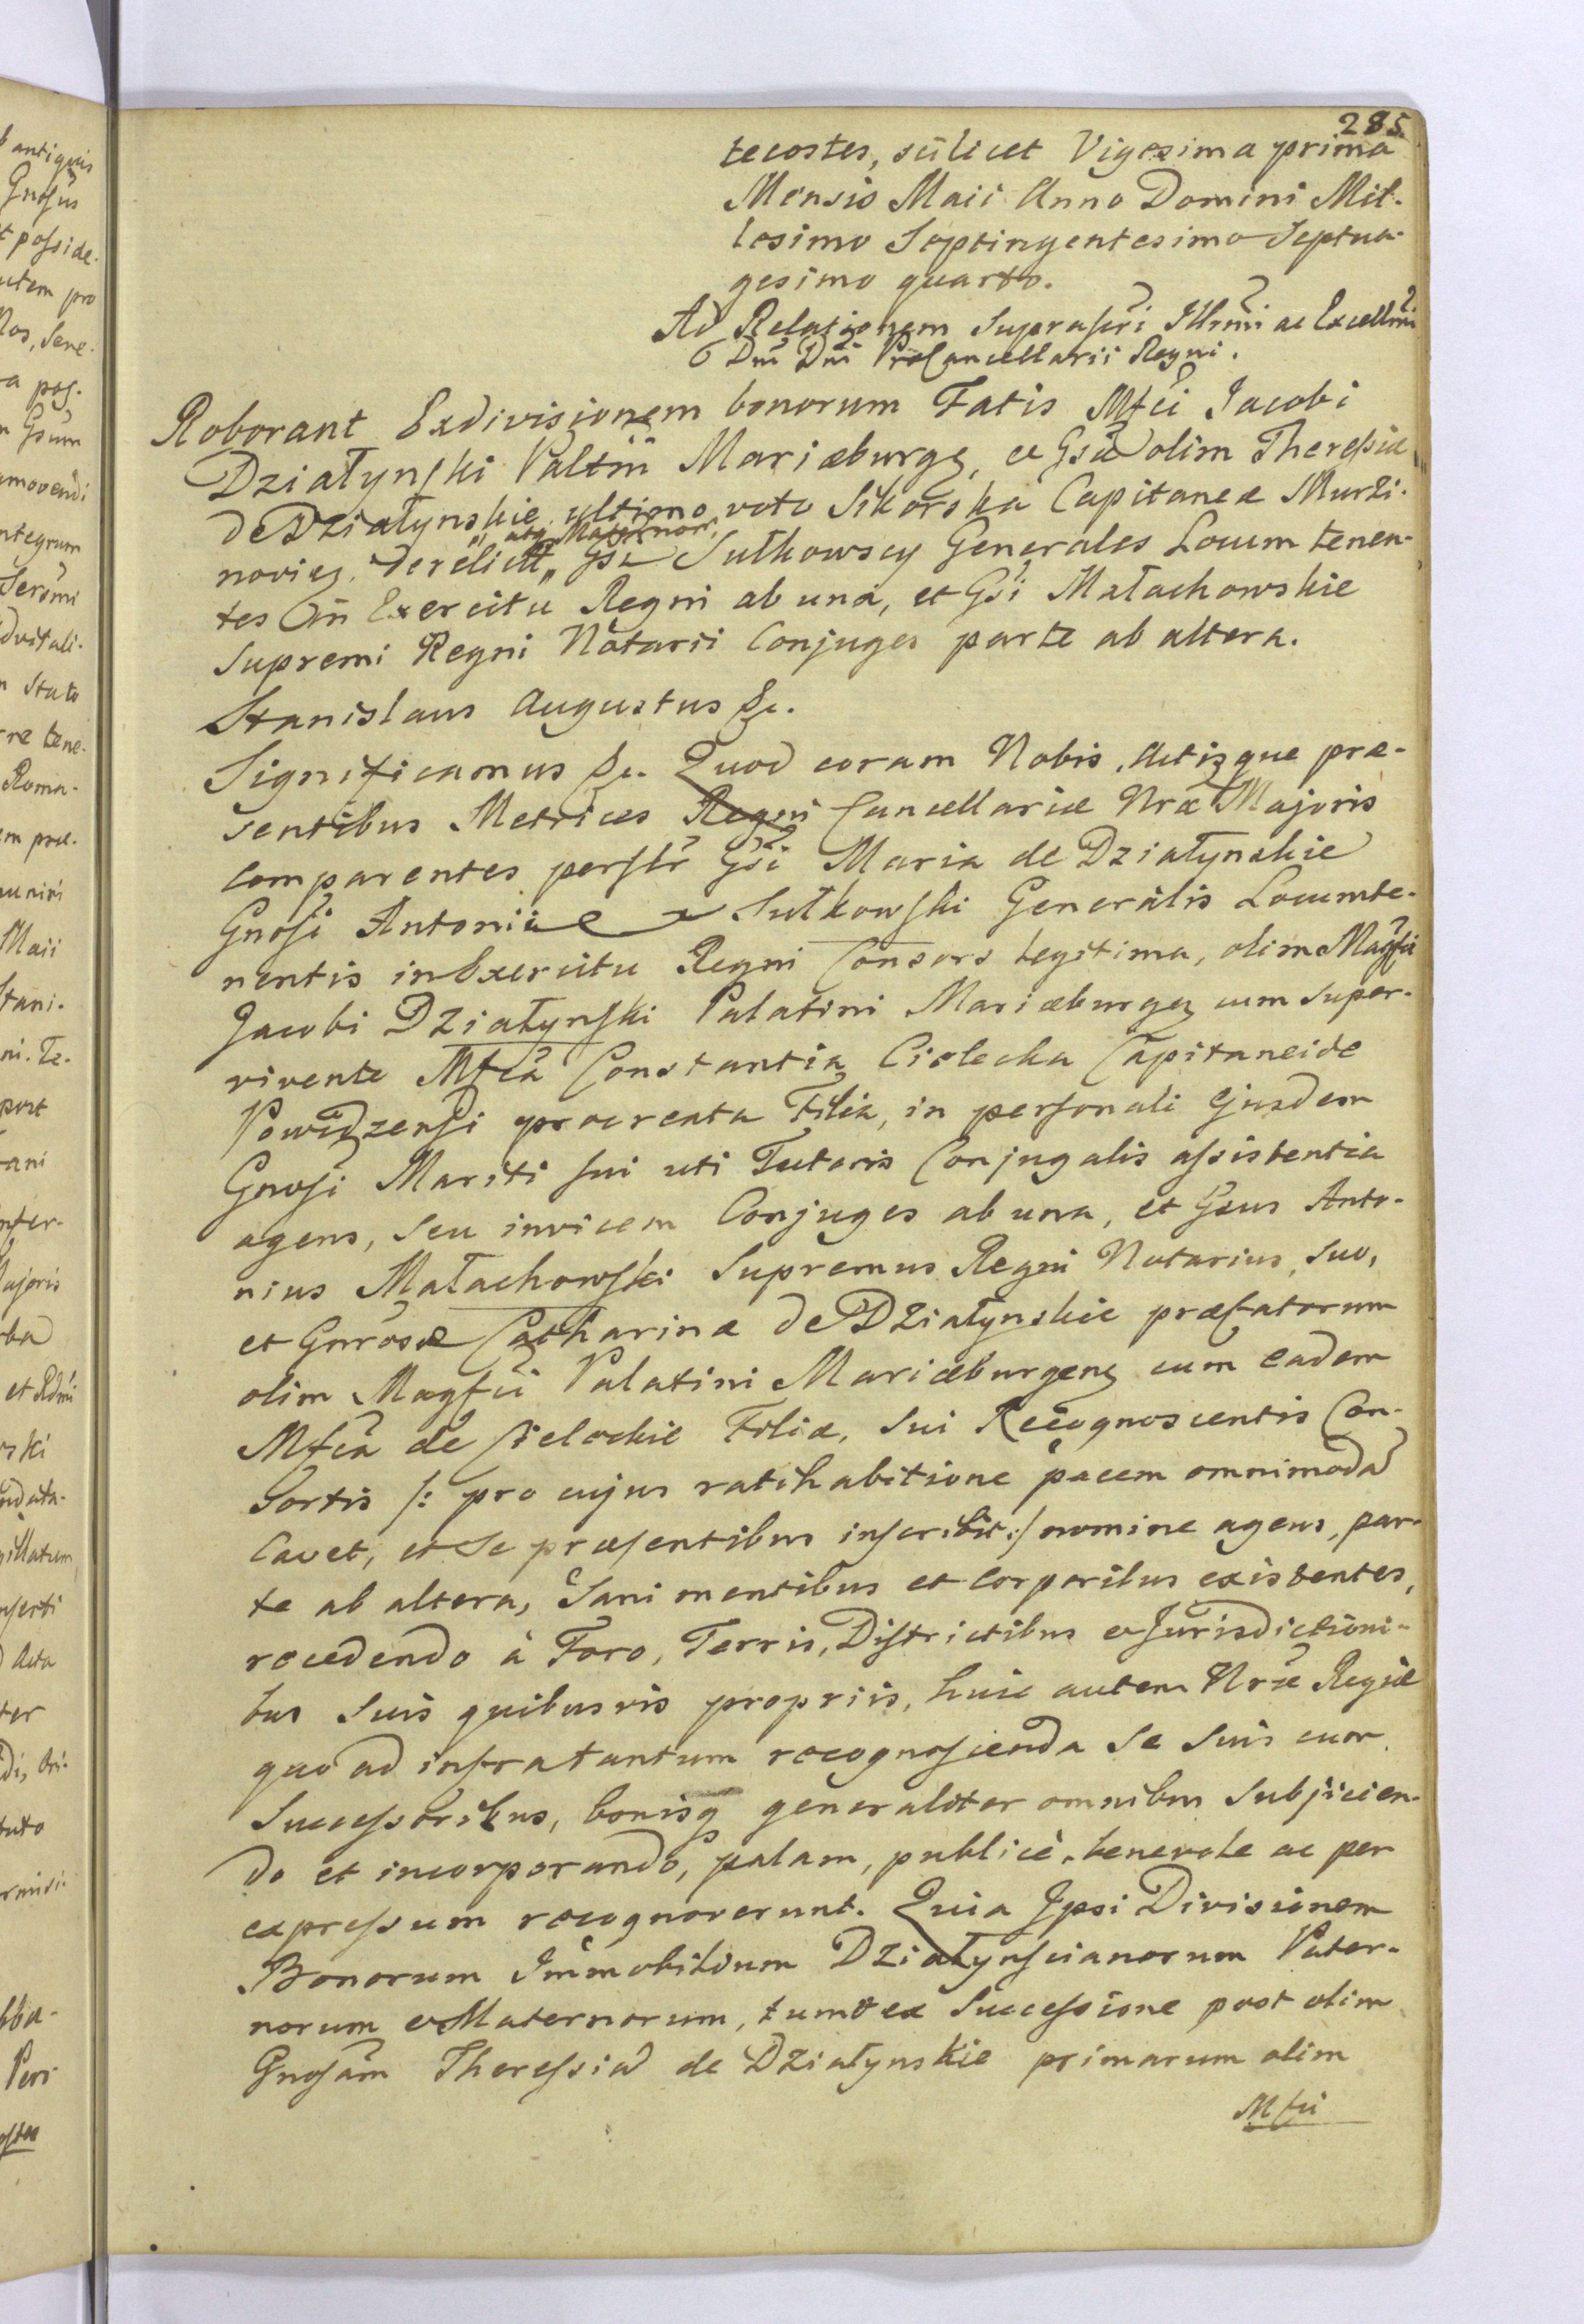 285
tecostes, scilicet Vigesima prima
Mensis Maii Anno Domini Mil-
lesimo Septingentesimo Septua-
gesimo quarto.
Ad Relationem Suprascri Illrmi ac Excellmi
Dni Dni ProCancellarii Regni.
Roborant Exdivisionem bonorum Fatis Mfci Jacobi
Działynski Paltni Mariæburgę, et Gsæ olim Theressiæ
de Działynskie ultimo voto Sikorska Capitaneæ Murzi-
novieg. derelict„ Gsi Sułkowscy Generales Locum tenen-
„atq Maternor.
tes in Exercitu Regni ab una, et Gsi Małachowskie
Supremi Regni Notarii Conjuges parte ab altera.
Stanislaus Augustus &c.
Significamus &c. Quod coram Nobis, Actisque præ-
sentibus Metrices Regni Cancellariæ Nræ Majoris
comparentes persłr Gsi Maria de Działynskie
Gnosi Antonii Sułkowski Generalis Locumte-
nentis in Exercitu Regni Consors legitima, olim Magfci
Jacobi Działynski Palatini Mariæburgeę cum super-
vivente Mfca Constantia Cielecka Capitaneide
Powidzensi procreata Filia, in personali Ejusdem
Gnosi Mariti sui uti Tutoris Conjugalis assistentia
agens, seu invicem Conjuges ab una, et Gsus Anto-
nius Małachowski Supremus Regni Notarius, suo,
et Gnrosæ Catharinæ de Działynskie præfatorum
olim Magfci Palatini Mariæburgenę cum eadem
Mfca de Cieleckie Filiæ, Sui Recognoscentis Con-
sortis /: pro cujus ratihabitione pacem omnimodã
cavet, et Se præsentibus inscribit :/ nomine agens, par-
te ab altera, Sani mentibus et corporibus existentes,
recedendo à Foro, Terris, Districtibus et Jurisdictioni-
bus Suis quibusvis propriis, huic autem Nræ Regiæ
quo ad infra tantum recognoscenda Se Suis cum
Successoribus, bonisq generaliter omnibus Subjicien-
do et incorporando, palam, publicè, benevole ac per
expressum recognoverunt. Quia Ipsi Divisionem
Bonorum Immobilium Działynscianorum Pater-
norum et Maternorum, tum et ex Successione post olim
Gnosam Theressiã de Działynskie primarum olim
Mfci